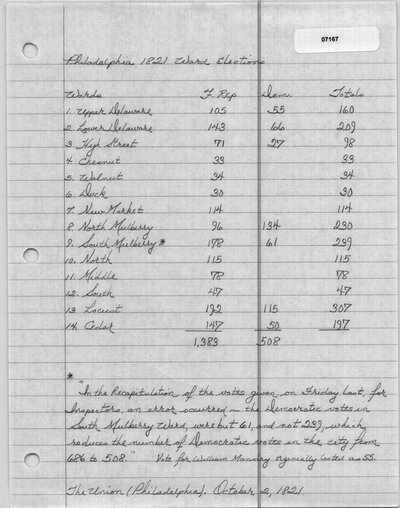 07167
Philadelphia 1821 Ward Elections
Wards F. Rep Dem. Totals
1. Upper Delaware 105 55 160
2. Lower Delaware 143 66 209
3. High Street 71 27 98
4. Chesnut 33 33
5. Walnut 34 34
6. Dock 30 30
7. New Market 114 114
8. North Mulberry 96 134 230
9. South Mulberry* 178 61 239
10. North 115 115
11. Middle 78 78
12. South 47 47
13. Locust 192 115 307
14. Cedar 147 50 197
1,383 508
*
"In the Recapitulation of the votes given on Friday last, for
Inspectors, an error occurred — the Democratic votes in
South Mulberry Ward, were but 61, and not 239, which
reduces the number of Democratic votes in the city from
686 to 508." Vote for William Mandry orginally listed as 55.
The Union (Philadelphia). October 2, 1821